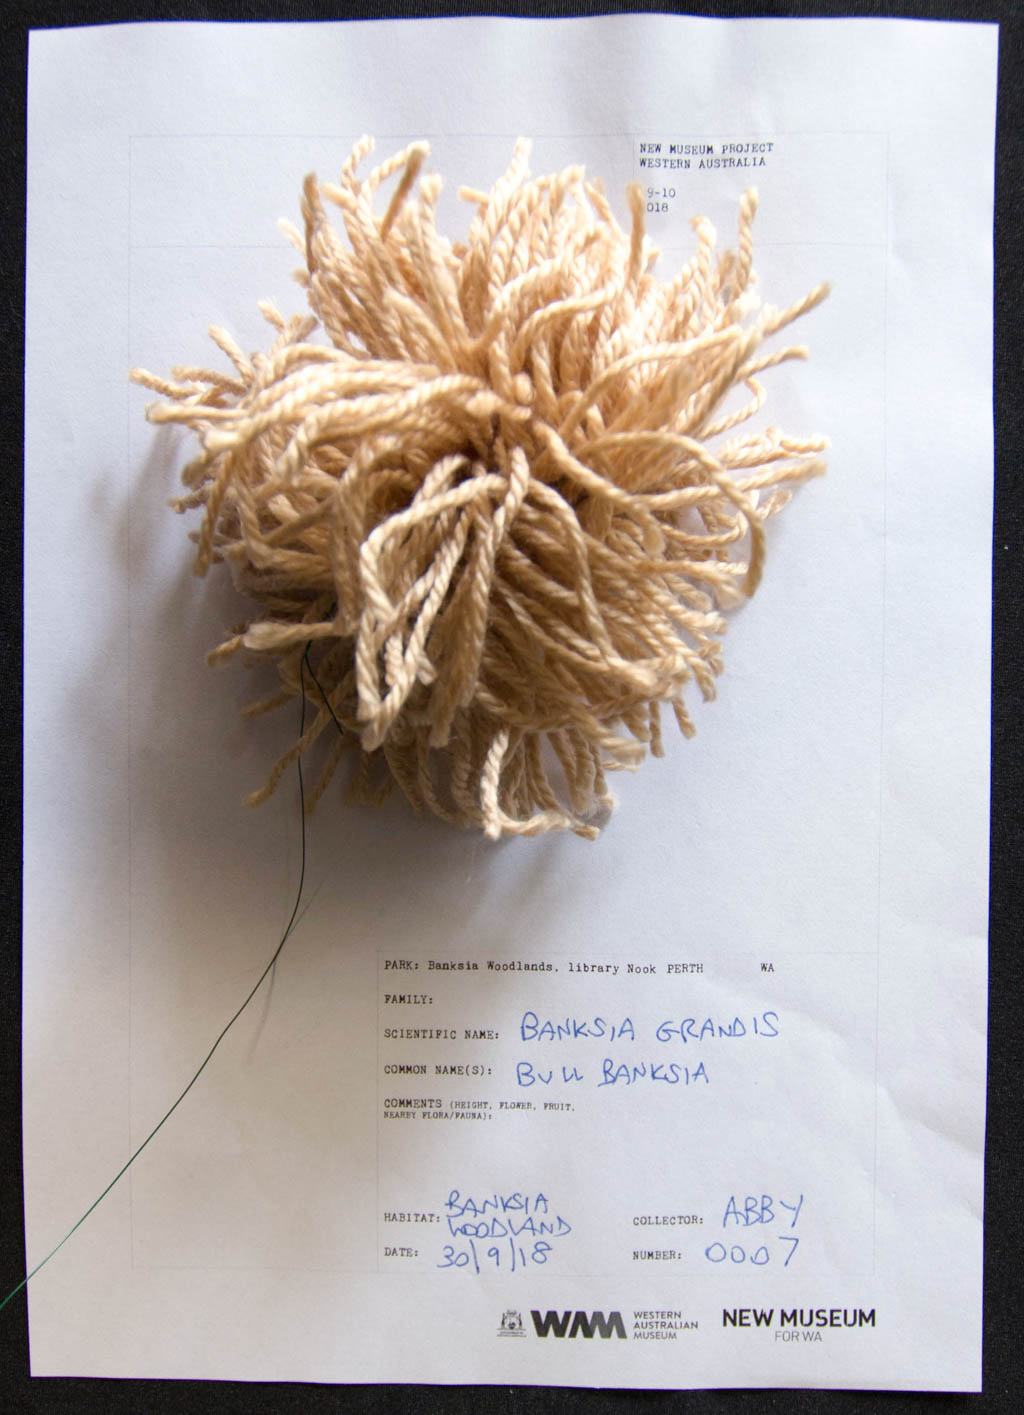 NEW MUSEUM PROJECT
WESTERN AUSTRALIA
9-10
018
PARK: Banksia Woodlands, library Nook PERTH WA
FAMILY:
SCIENTIFIC NAME: BANKSIA GRANDIS
COMMON NAME(S): BULL BANKSIA
COMMENTS (HEIGHT, FLOWER, FRUIT,
NEARBY FLORA/FAUNA):
HABITAT: BANKSIA
WOODLAND
COLLECTOR: ABBY
DATE: 30/9/18
NUMBER: 0007
WAM
WESTERN
AUSTRALIAN
MUSEUM
NEW MUSEUM
FOR WA